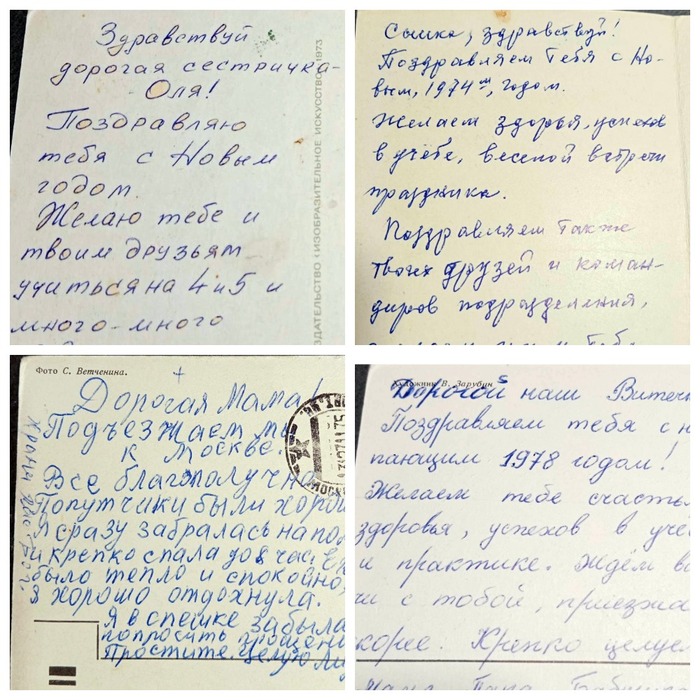 Здравствуй
дорогая сестричка
Оля!
Поздравляю
тебя с Новым
годом.
Желаю тебе и
твоим друзьям
учиться на 4 и 5 и
много-много
ИЗДАТЕЛЬСТВО «ИЗОБРАЗИТЕЛЬНОЕ ИСКУССТВО» 1973
Сашка, здравствуй!
Поздравляем Тебя с Но-
вым, 1974м, годом.
Желаем здоровья, успехов
в учёбе, веселой встречи
праздника.
Поздравляем также
твоих друзей и коман-
диров подразделения,
Фото С. Ветченина.
Дорогая Мама!
Подъезжаем
к Москве.
Все благополучно
Попутчики были
Я сразу забралась на
и крепко спала до 8
было тепло и спокойно,
я хорошо отдохнула.
Я в спешке забыла
попросить
Простите. Целую
Художник В. Зарубин
Дорогой наш
Поздравляем тебя с
пающим 1978 годом!
Желаем тебе
здоровья, успехов в
и практике. Ждём
с тобой,
Крепко
Папа